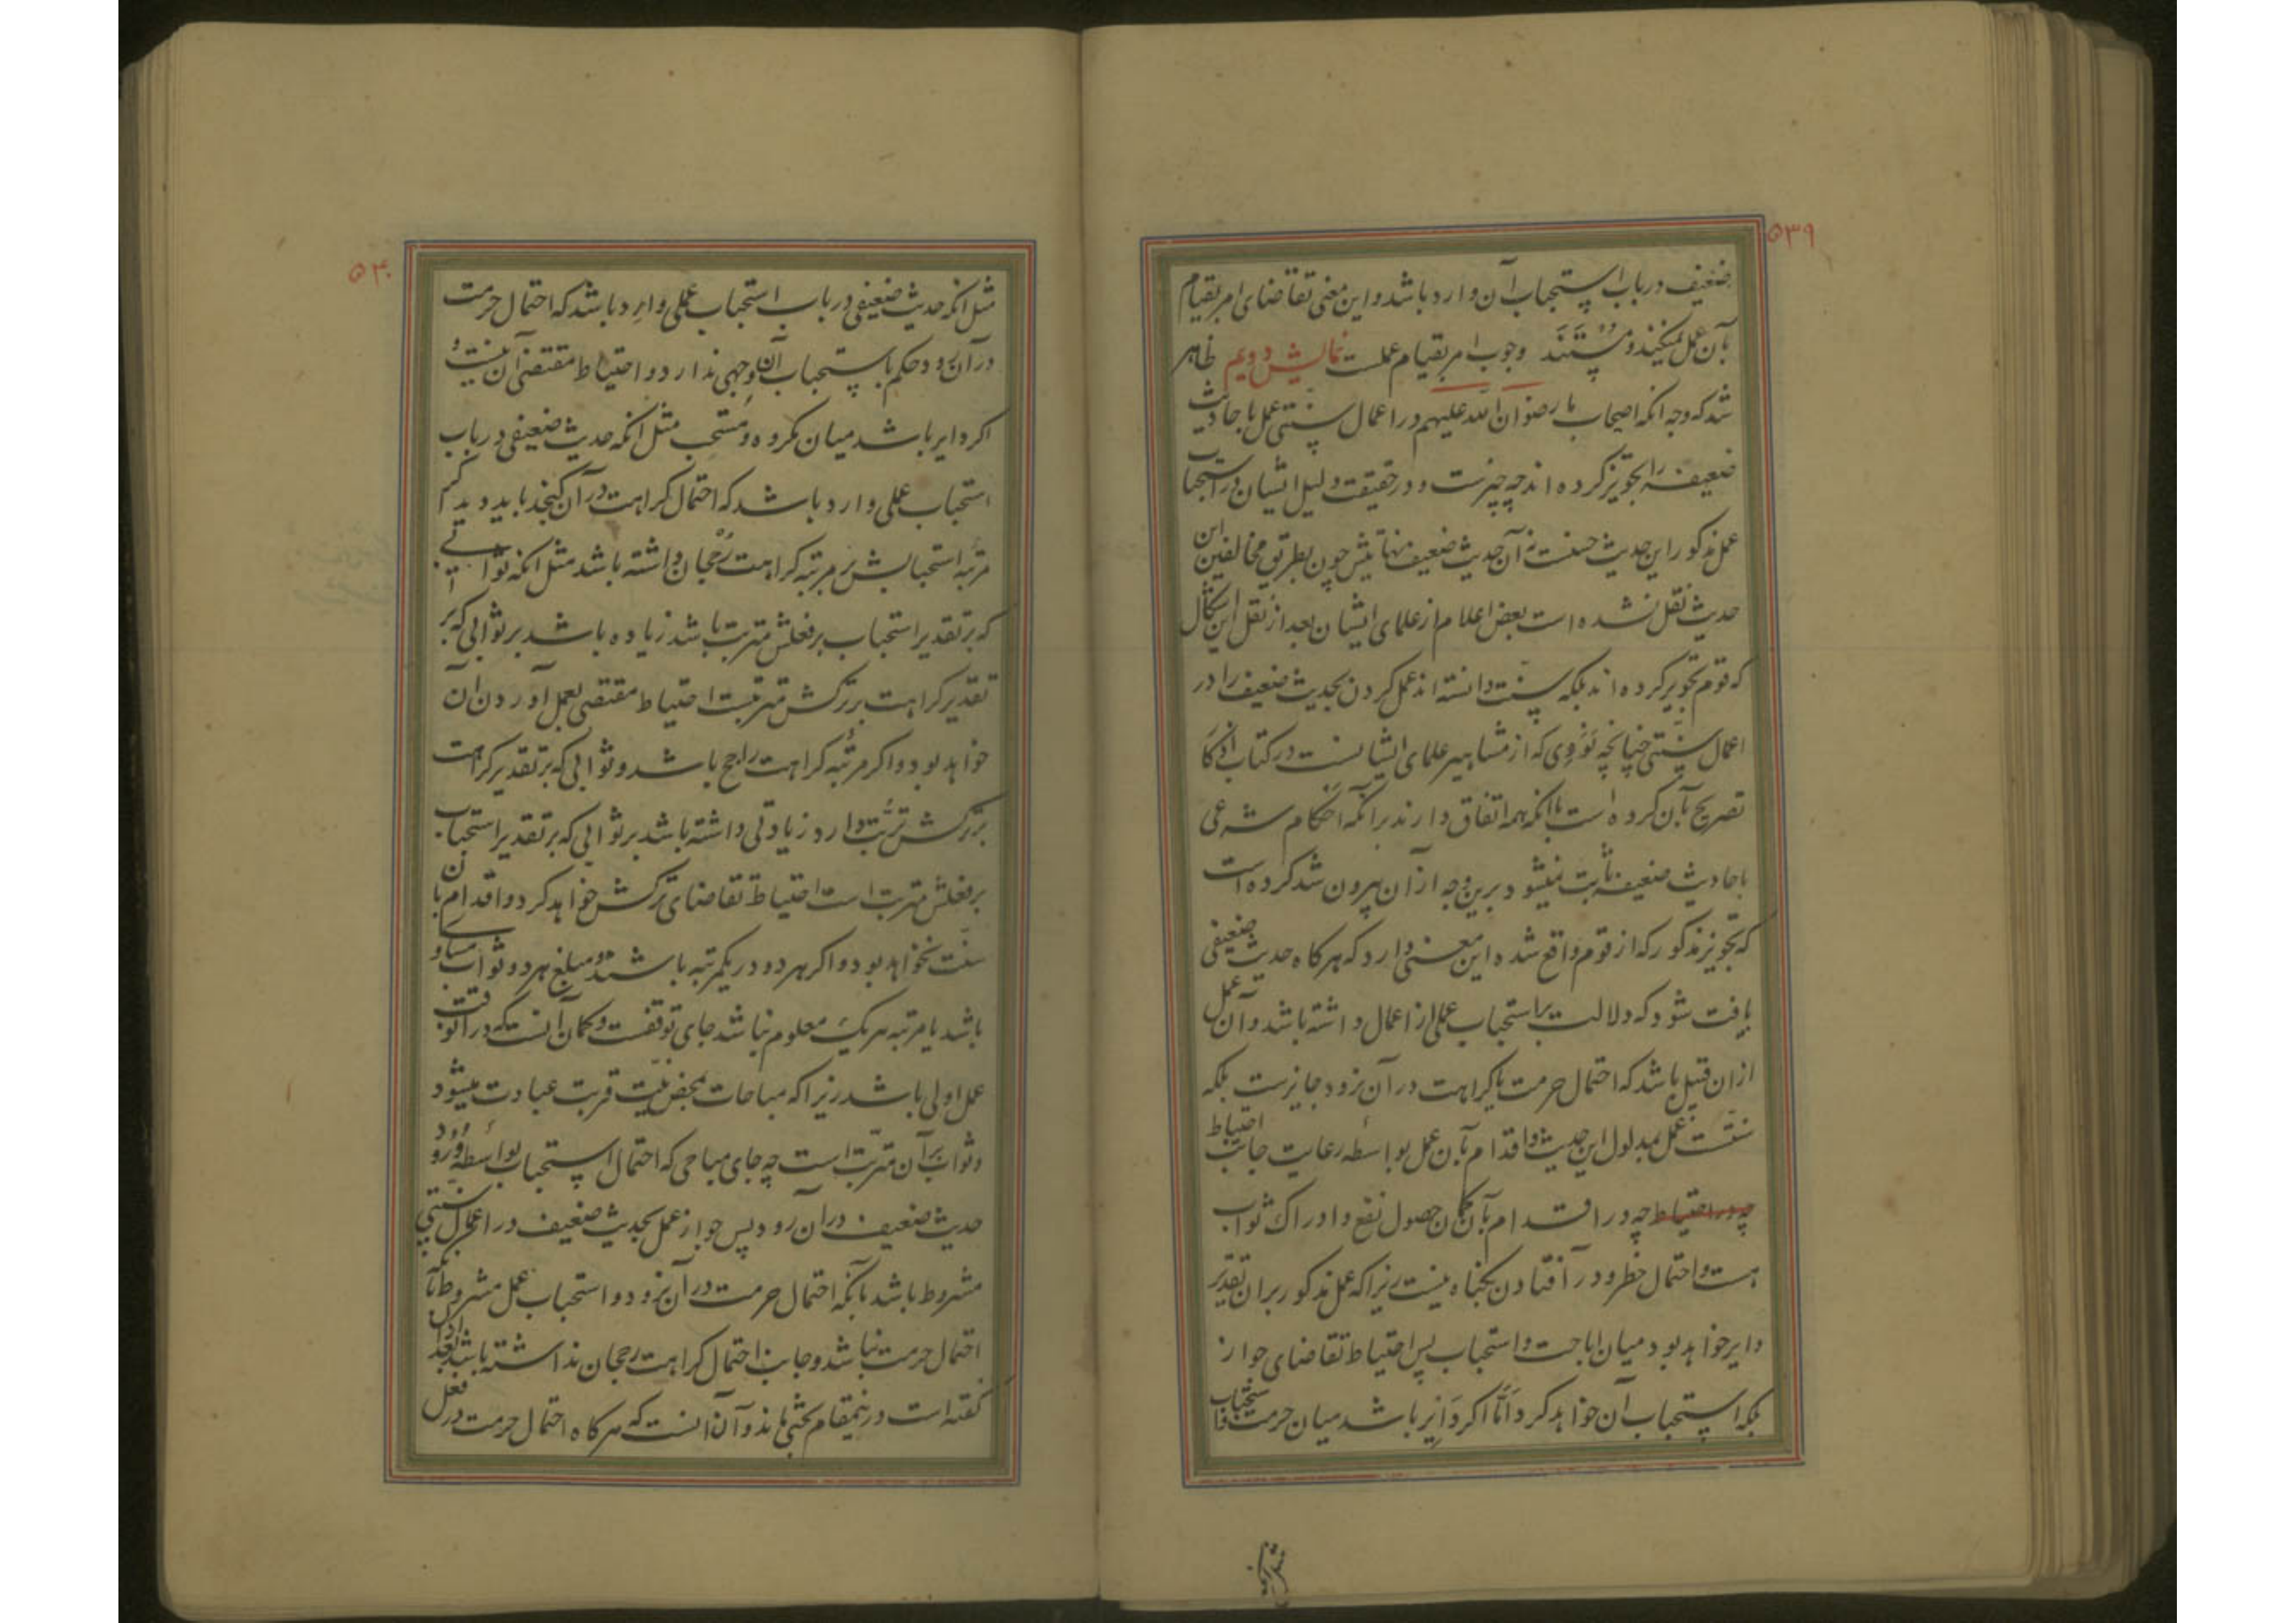 ۵۳۹
ضعیف در باب استحباب آن وارد باشد و این معنی تقاضای امر بقیام
بآن عمل نمیکند و مستند وجوب امر بقیام عملست نمایش دویم ظاهر
شد که وجه انکه اصحاب ما رضوان الله علیهم در اعمال سنتی عمل باحادیث
ضعیفه را تجویز کرده اند چه چیزست و در حقیقت دلیل ایشان در استحباب
عمل مذکور این حدیث حسنست نه آن حدیث ضعیف نهایتش چون بطریق مخالفین این
حدیث نقل نشده است بعض اعلام از علمای ایشان بعد از نقل این اشکال
که قوم تجویز کرده اند بلکه سنت دانسته اند عمل کردن بحدیث ضعیف را در
اعمال سنتی چنانچه نووی که از مشاهیر علمای ایشانست در کتاب اذکار
تصریح بآن کرده است با انکه همه اتفاق دارند بر انکه احکام شرعی
باحادیث ضعیفه ثابت نمیشود برین وجه از آن بیرون شد کرده است
که تجویز مذکور که از قوم واقع شده این معنی دارد که هرکاه حدیث ضعیفی
یافت شود که دلالت بر استحباب عملی از اعمال داشته باشد و آن عمل
از ان قبیل باشد که احتمال حرمت یا کراهت در آن نرود جایزست بلکه
سنتست عمل بمدلول این حدیث و اقدام بآن عمل بواسطه رعایت جانب احتیاط
چه در احتیاط چه در اقدام بآن کمان حصول نفع و ادراک ثواب
هست و احتمال خطر و در افتادن بکناه نیست زیرا که عمل مذکور بر ان تقدیر
دایر خواهد بود میان اباحت و استحباب پس احتیاط تقاضای جواز
بلکه استحباب آن خواهد کرد و اما اکر دایر باشد میان حرمت و استحباب
مثل انکه
۵۴۰
مثل انکه حدیث ضعیفی در باب استحباب عملی وارد باشد که احتمال حرمت
در آن رود حکم باستحباب آن وجهی ندارد و احتیاط مقتضی آن نیست و
اکر دایر باشد میان مکروه و مستحب مثل انکه حدیث ضعیفی در باب
استحباب عملی وارد باشد که احتمال کراهت در آن کنجد باید دید کر
مرتبه استحبابش بر مرتبه کراهت رجحان داشته باشد مثل انکه ثوابی
که بر تقدیر استحباب بر فعلش مترتب باشد زیاده باشد بر ثوابی که بر
تقدیر کراهت بر ترکش مترتبست احتیاط مقتضی بعمل آوردن ان
خواهد بود و اکر مرتبه کراهت راجح باشد و ثوابی که بر تقدیر کراهت
بر ترکش ترتب دارد زیادتی داشته باشد بر ثوابی که بر تقدیر استحباب
بر فعلش مترتب است احتیاط تقاضای ترکش خواهد کرد و اقدام بان
سنت نخواهد بود و اکر هر دو در یکمرتبه باشند و مبلغ هر دو ثواب مساوی
باشد یا مرتبه هر یک معلوم نباشد جای توقفست و کمان آنست که در آنوقت
عمل اولی باشد زیرا که مباحات بمحض نیت قربت عبادت میشود
و ثواب بر آن مترتب است چه جای مباحی که احتمال استحباب بواسطه ورود
حدیث ضعیف در آن رود پس جواز عمل بحدیث ضعیف در اعمال سنتی
مشروط باشد بآنکه احتمال حرمت در آن نرود و استحباب عمل مشروط بآنکه
احتمال حرمت نباشد و جانب احتمال کراهت رجحان نداشته باشد بعد ازان
کفته است در ینمقام بحثی ماند و آن آنست که هرکاه احتمال حرمت در فعل